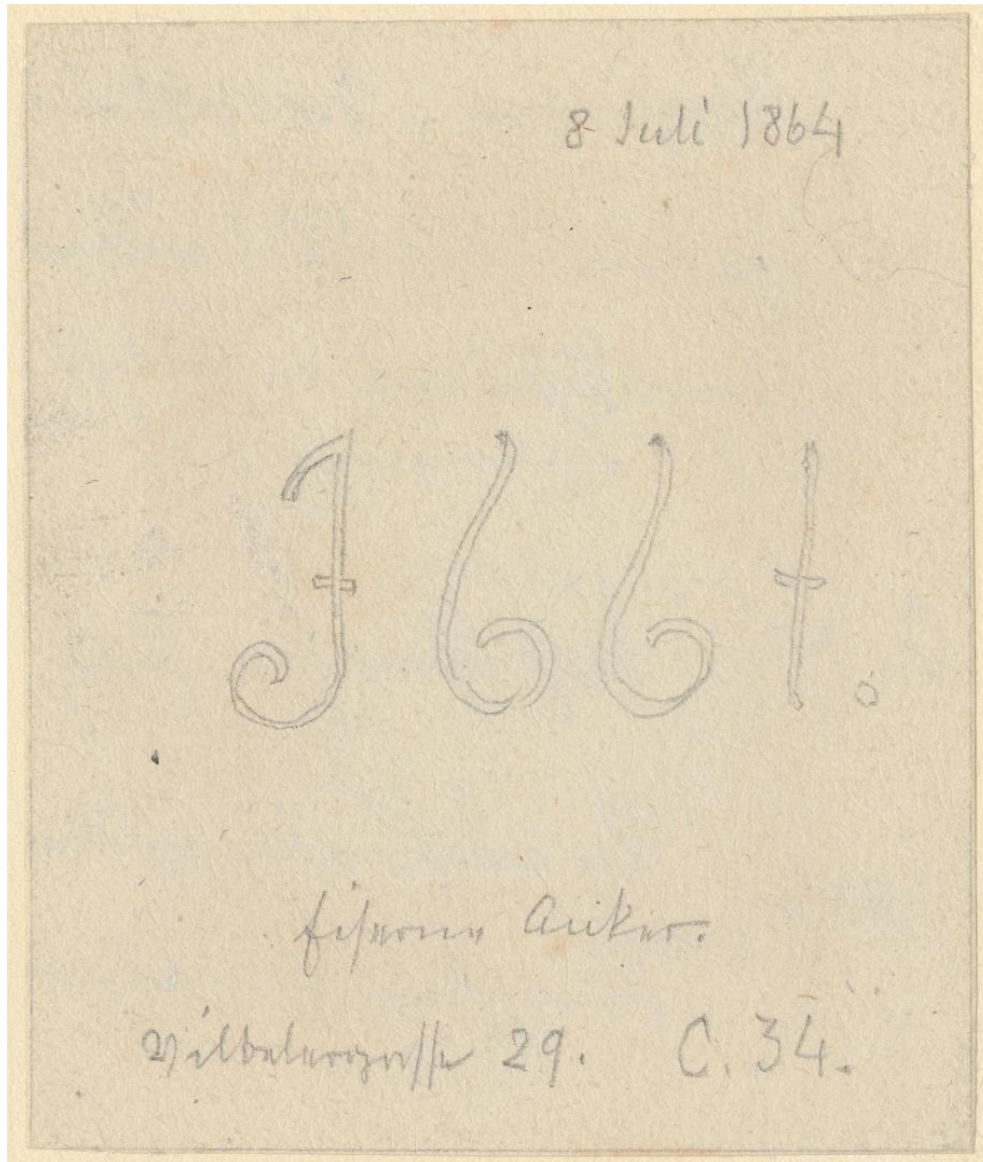 8 Juli 1864
J661.
Eiserne Anker.
Vilbelergasse 29. C. 34.